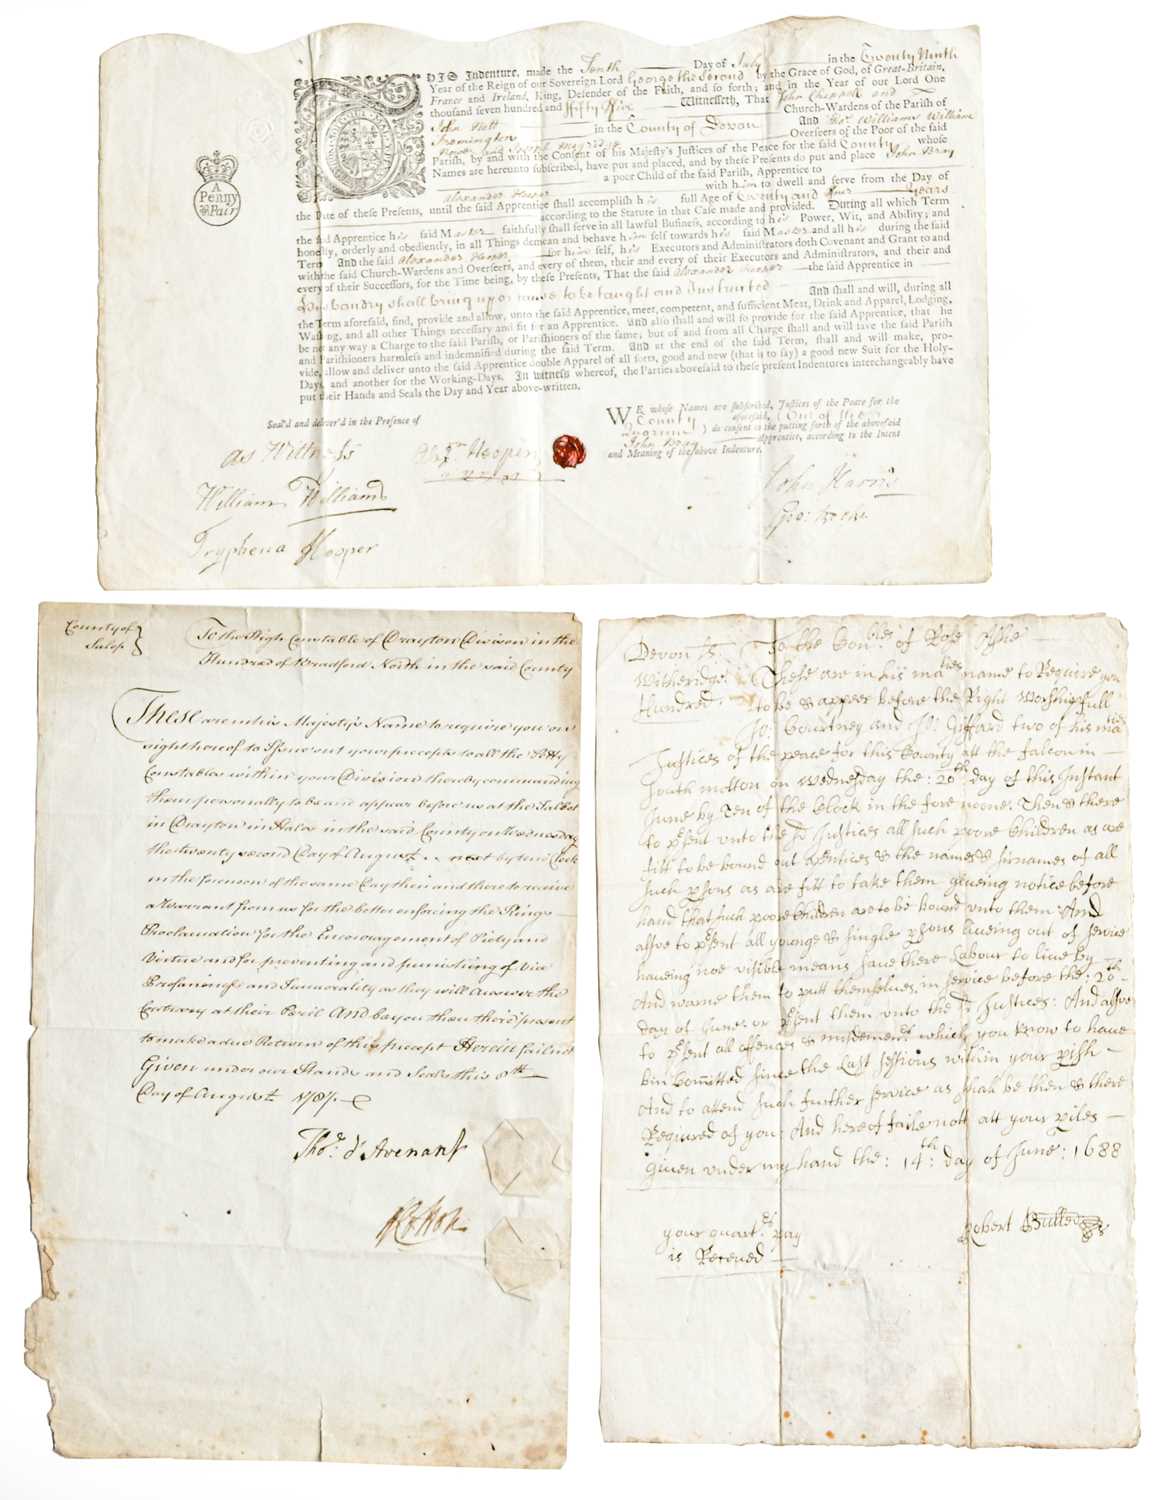 A
Penny
pr Pair
THIS Indenture, made the Tenth Day of July in the Twenty Ninth
Year of the Reign of our Sovereign Lord George the Second by the Grace of God, of Great-Britain,
France and Ireland, King, Defender of the Faith, and so forth; and in the Year of our Lord One
thousand seven hundred and fifty five Witnesseth, That John Chappell and
John Nott Church-Wardens of the Parish of
Fremington in the County of Devon And Thos. Williams William
Overseers of the Poor of the said
Parish, by and with the Consent of his Majesty's Justices of the Peace for the said County whose
Names are hereunto subscribed, have put and placed, and by these Presents do put and place John Bray
a poor Child of the said Parish, Apprentice to
Alexander Hooper with him to dwell and serve from the Day of
the Date of these Presents, until the said Apprentice shall accomplish his full Age of Twenty and four Years
according to the Statute in that Case made and provided. During all which Term
the said Apprentice his said Master faithfully shall serve in all lawful Business, according to his Power, Wit, and Ability; and
honestly, orderly and obediently, in all Things demean and behave himself towards his said Master and all his during the said
Term And the said Alexander Hooper for himself, his Executors and Administrators doth Covenant and Grant to and
with the said Church-Wardens and Overseers, and every of them, their and every of their Executors and Administrators, and their and
every of their Successors, for the Time being, by these Presents, That the said Alexander Hooper the said Apprentice in
Husbandry shall bring up or cause to be taught and Instructed And shall and will, during all
the Term aforesaid, find, provide and allow, unto the said Apprentice, meet, competent, and sufficient Meat, Drink and Apparel, Lodging,
Washing, and all other Things necessary and fit for an Apprentice. And also shall and will so provide for the said Apprentice, that he
be no any way a Charge to the said Parish, or Parishioners of the same; but of and from all Charge shall and will save the said Parish
and Parishioners harmless and indemnified during the said Term. And at the end of the said Term, shall and will make, pro-
vide, allow and deliver unto the said Apprentice double Apparel of all sorts, good and new (that is to say) a good new Suit for the Holy-
Days, and another for the Working-Days. In witness whereof, the Parties abovesaid to these present Indentures interchangeably have
put their Hands and Seals the Day and Year above-written.
Seal'd and deliver'd in the Presence of
As Wittness
William Williams
Tryphena Hooper
Alexr. Hooper
WE whose Names are subscribed, Justices of the Peace for the
County aforesaid, (One of them
Quorum) do consent to the putting forth of the abovesaid
John Bray Apprentice, according to the Intent
and Meaning of the above Indenture.
John Harris
Geo:
County of
Salop
To the High Constable of Drayton Division in the
Hundred of Bradford North in the said County
These are in his Majestys Name to require you on
sight hereof to Issue out your precepts to all the Petty
Constables within your Division thereby commanding
them personally to be and appear before us at the Talbot
in Drayton in Hales in the said County on Wednesday
the twenty second Day of August next by ten o'Clock
in the forenoon of the same Day then and there to receive
a Warrant from us for the better enforcing the Kings
Proclamation for the Encouragement of Piety and
Virtue and for preventing and punishing of Vice
Profaneness and Immorality as they will answer the
Contrary at their Peril And be you then there present
to make a due Return of this precept Herein fail not
Given under our Hands and Seals this 8th
Day of August 1787
Thos. d'Avenant
Devon ss. To the Conbles of Rose Ashe
Witheridge Hundred. These are in his maties name to Require you
to be & appear before the Right Worshipfull
Jo: Courtney and Jo: Giffard two of his maties
Justices of the peace for this County att the falcon in
South molton on Wednesday the: 20th day of this Instant
June by Ten of the Clock in the fore noone. Then & there
to psent unto the sd Justices all such poore Children as are
fitt to be bound out apentices & the names & sirnames of all
such psons as are fitt to take them giveing notice before
hand that such poore Children are to be bound unto them. And
alsoe to psent all younge & single psons liveing out of service
haveing noe visible means save there Labour to live by
And warne them to putt themselves in service before the: 20th
day of June. or psent them unto the sd Justices: And alsoe
to psent all offences & misdemenrs which you know to have
bin Comitted since the Last sessions within your pish
And to attend such further service as shall be then & there
Required of you: And hereof faile nott att your piles
given under my hand the: 14th: day of June: 1688
your quartrs pay
is Receved
Robert